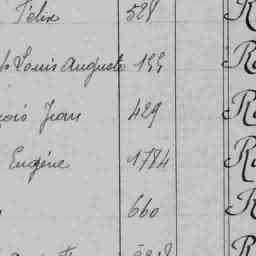 Félix 528 R
Louis Auguste 199 R
Jean 429 R
Eugène 1784 R
660 R
R